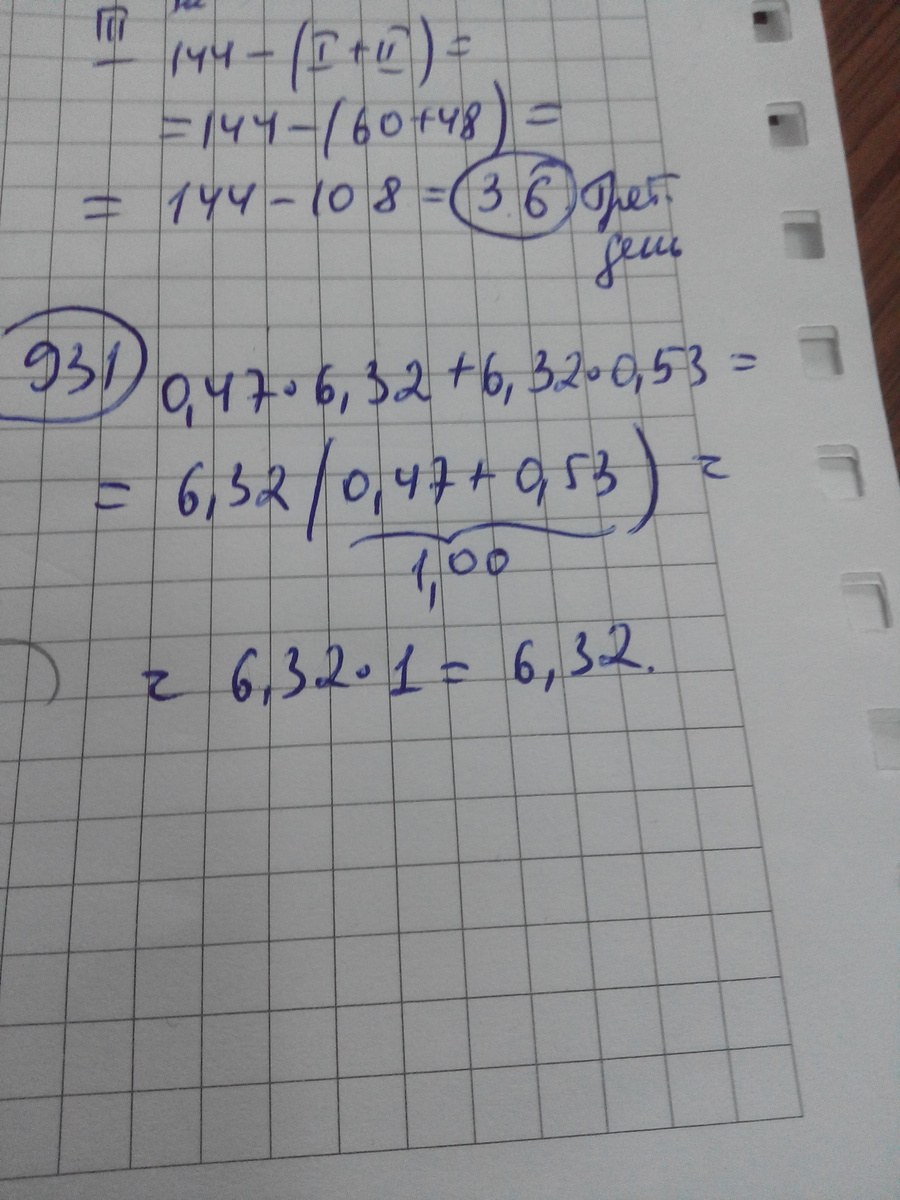 III 144 - (I + II) =
= 144 - (60 + 48) =
= 144 - 108 = 36 Трет.
день
931 0,47 · 6,32 + 6,32 · 0,53 =
= 6,32 (0,47 + 0,53) =
1,00
= 6,32 · 1 = 6,32.